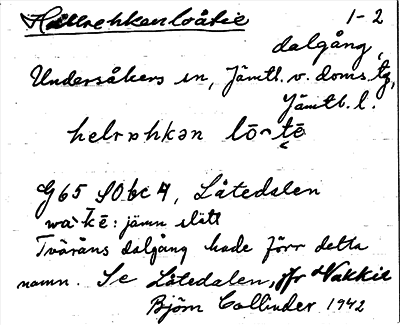 Hællrehkenloåtie 1-2
dalgång,
Undersåkers sn, Jämtl. v. doms. tg,
Jämtl. l.
helrəhkən lō̭tē
G 65 S O b c 4, Låtedalen
wa·kē: jämn slätt
Tväråns dalgång hade förr detta
namn. Se Låtedalen, jfr Vakkie
Björn Collinder 1942